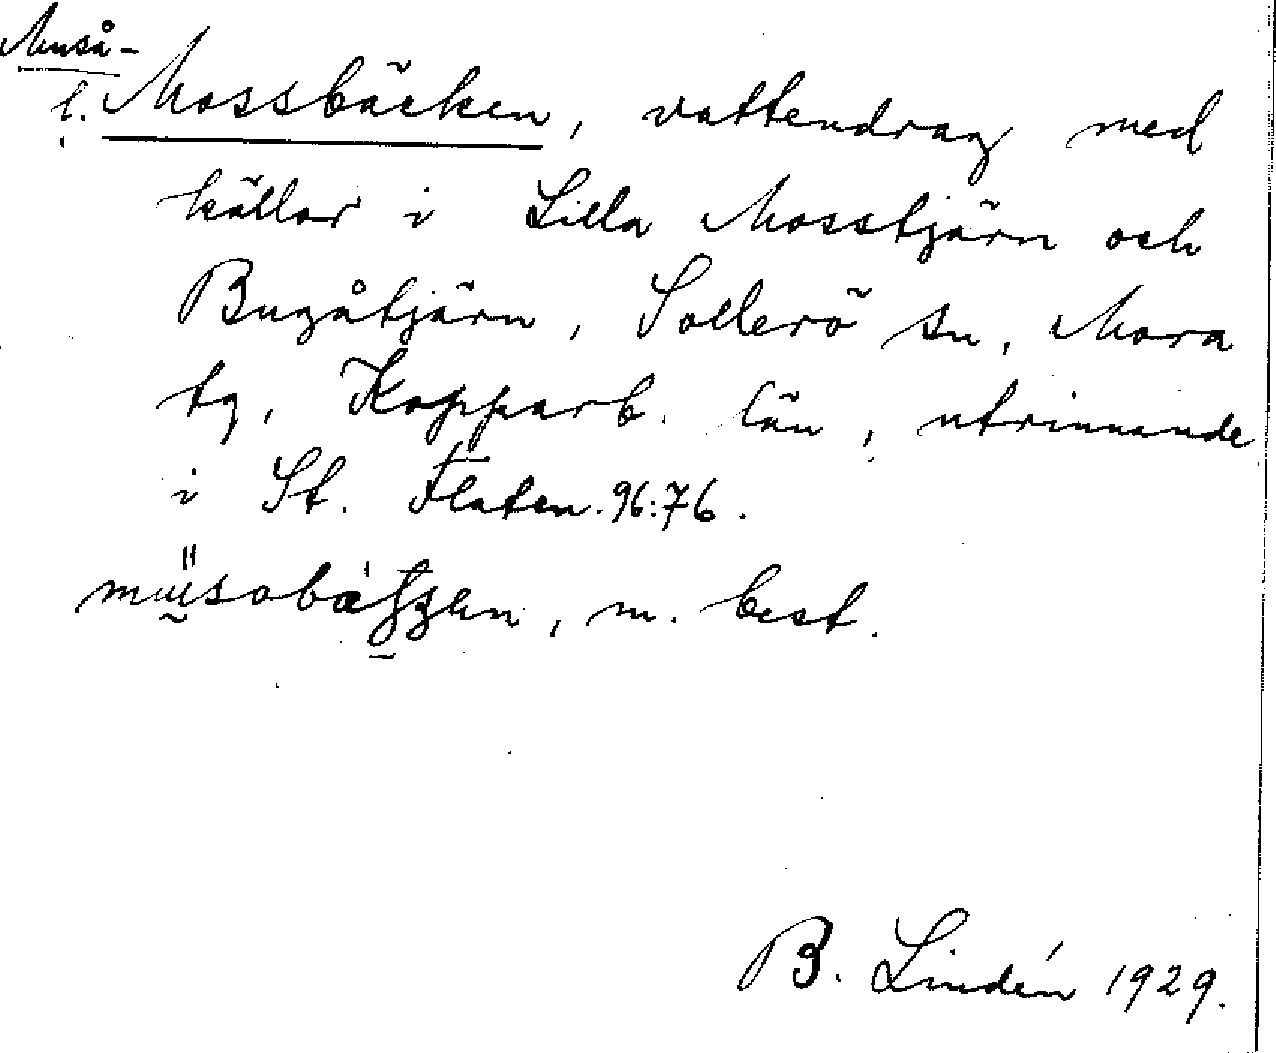 Muså-
l. Mossbäcken, vattendrag med
källor i Lilla Mosstjärn och
Bugåtjärn, Sollerö sn, Mora
tg, Kopparb. län, utrinnande
i St. Flaten. 96:76.
m. best.
B. Lindén 1929.